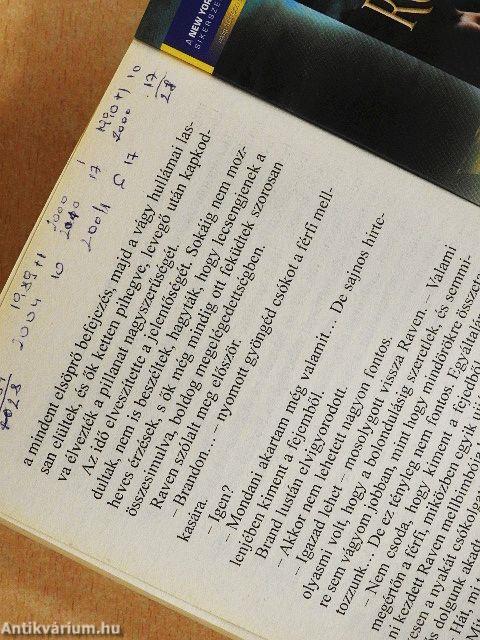 A NEW YOR
SIKERSZE
a mindent elsöprő befejezés, majd a vágy hullámai las-
san elültek, és ők ketten pihegve, levegő után kapkod-
va élvezték a pillanat nagyszerűségét.
Az idő elveszítette a jelentőségét. Sokáig nem moz-
dultak, nem is beszéltek, hagyták, hogy lecsengjenek a
heves érzések, s ők még mindig ott feküdtek szorosan
összesimulva, boldog megelégedettségben.
Raven szólalt meg először.
– Brandon… – nyomott gyöngéd csókot a férfi mell-
kasára.
– Igen?
– Mondani akartam még valamit… De sajnos hirte-
lenjében kiment a fejemből.
Brand lustán elvigyorodott.
– Akkor nem lehetett nagyon fontos.
– Igazad lehet – mosolygott vissza Raven. – Valami
olyasmi volt, hogy a bolondulásig szeretlek, és semmi-
re sem vágyom jobban, mint hogy mindörökre összeta
tozzunk… De ez tényleg nem fontos. Egyáltalán
– Nem csoda, hogy kiment a fejedből
megértőn a férfi, miközben egyik
ni kezdett Raven mellbimbója
sen a nyakát csókolga
dolgunk akad
Hát, mi t
Antikvárium.hu